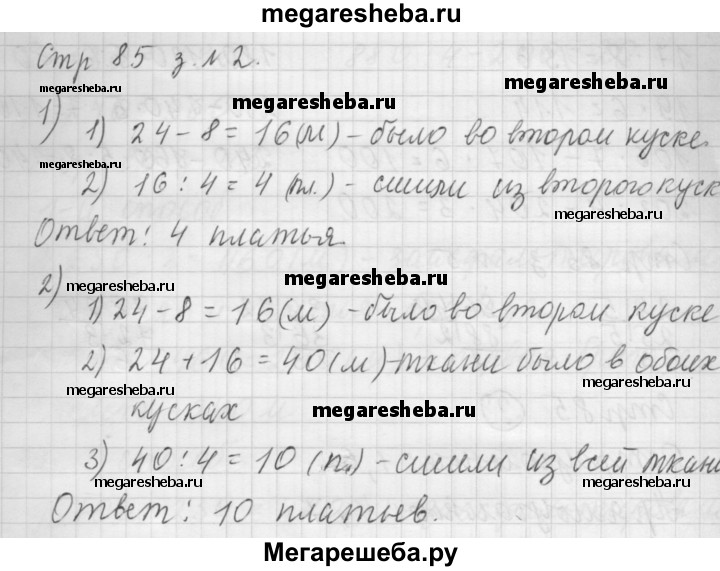 megaresheba.ru
Стр 85 з. №2.
megaresheba.ru
megaresheba.ru
megaresheba.ru
1)
1) 24-8=16(м)-было во втором куске.
megaresheba.ru
2) 16:4=4 (пл.)-сшили из второго куск
megaresheba.ru
Ответ: 4 платья.
megaresheba.ru
2)
megaresheba.ru
megaresheba.ru
1) 24-8=16(м)-было во втором куске
2) 24+16=40(м)-ткани было в обоих
megaresheba.ru
кусках
megaresheba.ru
3) 40:4=10 (п.)-сшили из всей ткани
megaresheba.ru
megaresheba.ru
Ответ: 10 платьев.
Мегарешеба.ру